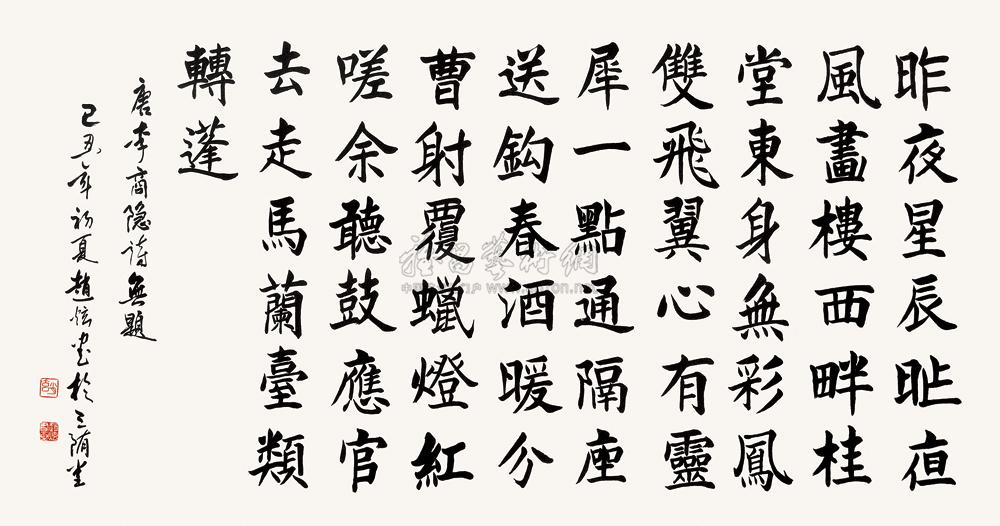 昨夜星辰昨夜
風畫樓西畔桂
堂東身無彩鳳
雙飛翼心有靈
犀一點通隔座
送鈎春酒暖分
曹射覆蠟燈紅
嗟余聽鼓應官
去走馬蘭臺類
轉蓬
唐李商隐诗無題
己丑年初夏趙於三
雅昌藝術網